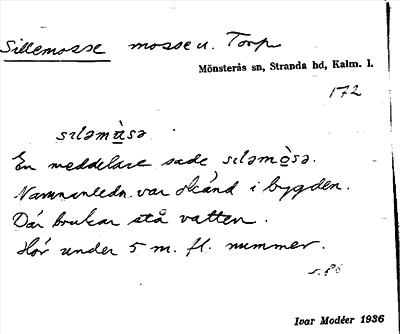 Sillemosse mosse u. Torp
Mönsterås sn, Stranda hd, Kalm. l.
172
sıləmàsə.
En meddelare sade sıləmòsə.
Namnanledn. var okänd i bygden.
Där brukar stå vatten.
Hör under 5 m. fl. nummer.
s. 86
Ivar Modéer 1936